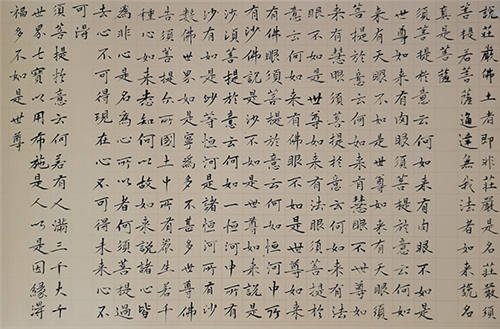 說莊嚴佛土者即非莊嚴是名莊嚴須
菩提若菩薩通達無我法者如來說名
真是菩薩
須菩提於意云何如來有肉眼不如是
世尊如來有肉眼須菩提於意云何如
來有天眼不如是世尊如來有天眼須
菩提於意云何如來有慧眼不如是世尊如
來有慧眼須菩提於意云何如來有法
眼不如是世尊如來有法眼須菩提於
意云何如來有佛眼不如是世尊如來
有佛眼須菩提於意云何如恒河中所
有沙佛說是沙不如是世尊如來說是
沙須菩提於意云何如一恒河中所有
沙有如是沙等恒河是諸恒河所有沙
數佛世界如是寧為多不甚多世尊佛
告須菩提尒所國土中所有眾生若干
種心如來悉知何以故如來說諸心皆
為非心是名為心所以者何須菩提過
去心不可得現在心不可得未來心不
可得
須菩提於意云何若有人滿三千大千
世界七寶以用布施是人以是因緣得
福多不如是世尊